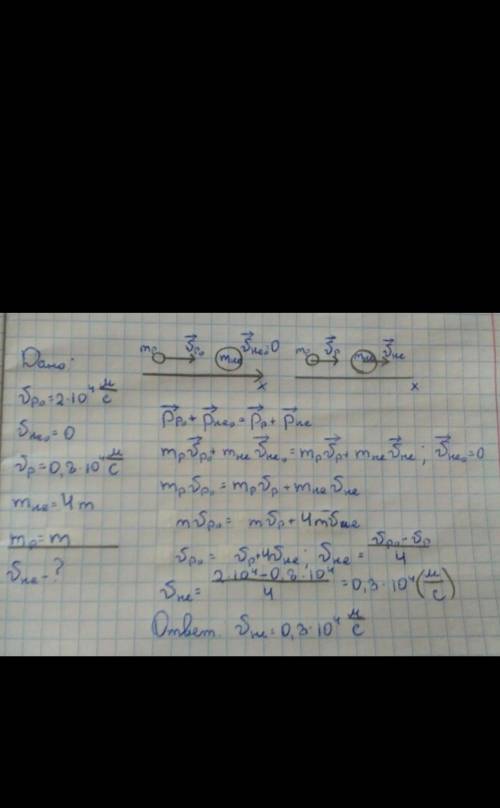 Дано:
υp₀=2·10⁴ м/с
υHe₀=0
υp=0,8·10⁴ м/с
mHe=4m
mp=m
υHe-?
mp υ⃗p₀ mHe υ⃗He₀=0 mp υ⃗p mHe υ⃗He
x x
p⃗p₀+p⃗He₀=p⃗p+p⃗He
mpυ⃗p₀+mHeυ⃗He₀=mpυ⃗p+mHeυ⃗He; υ⃗He₀=0
mpυp₀=mpυp+mHeυHe
mυp₀= mυp+4mυHe
υp₀= υp+4υHe; υHe= (υp₀-υp)/4
υHe= (2·10⁴-0,8·10⁴)/4 =0,3·10⁴(м/с)
Ответ. υHe=0,3·10⁴ м/с